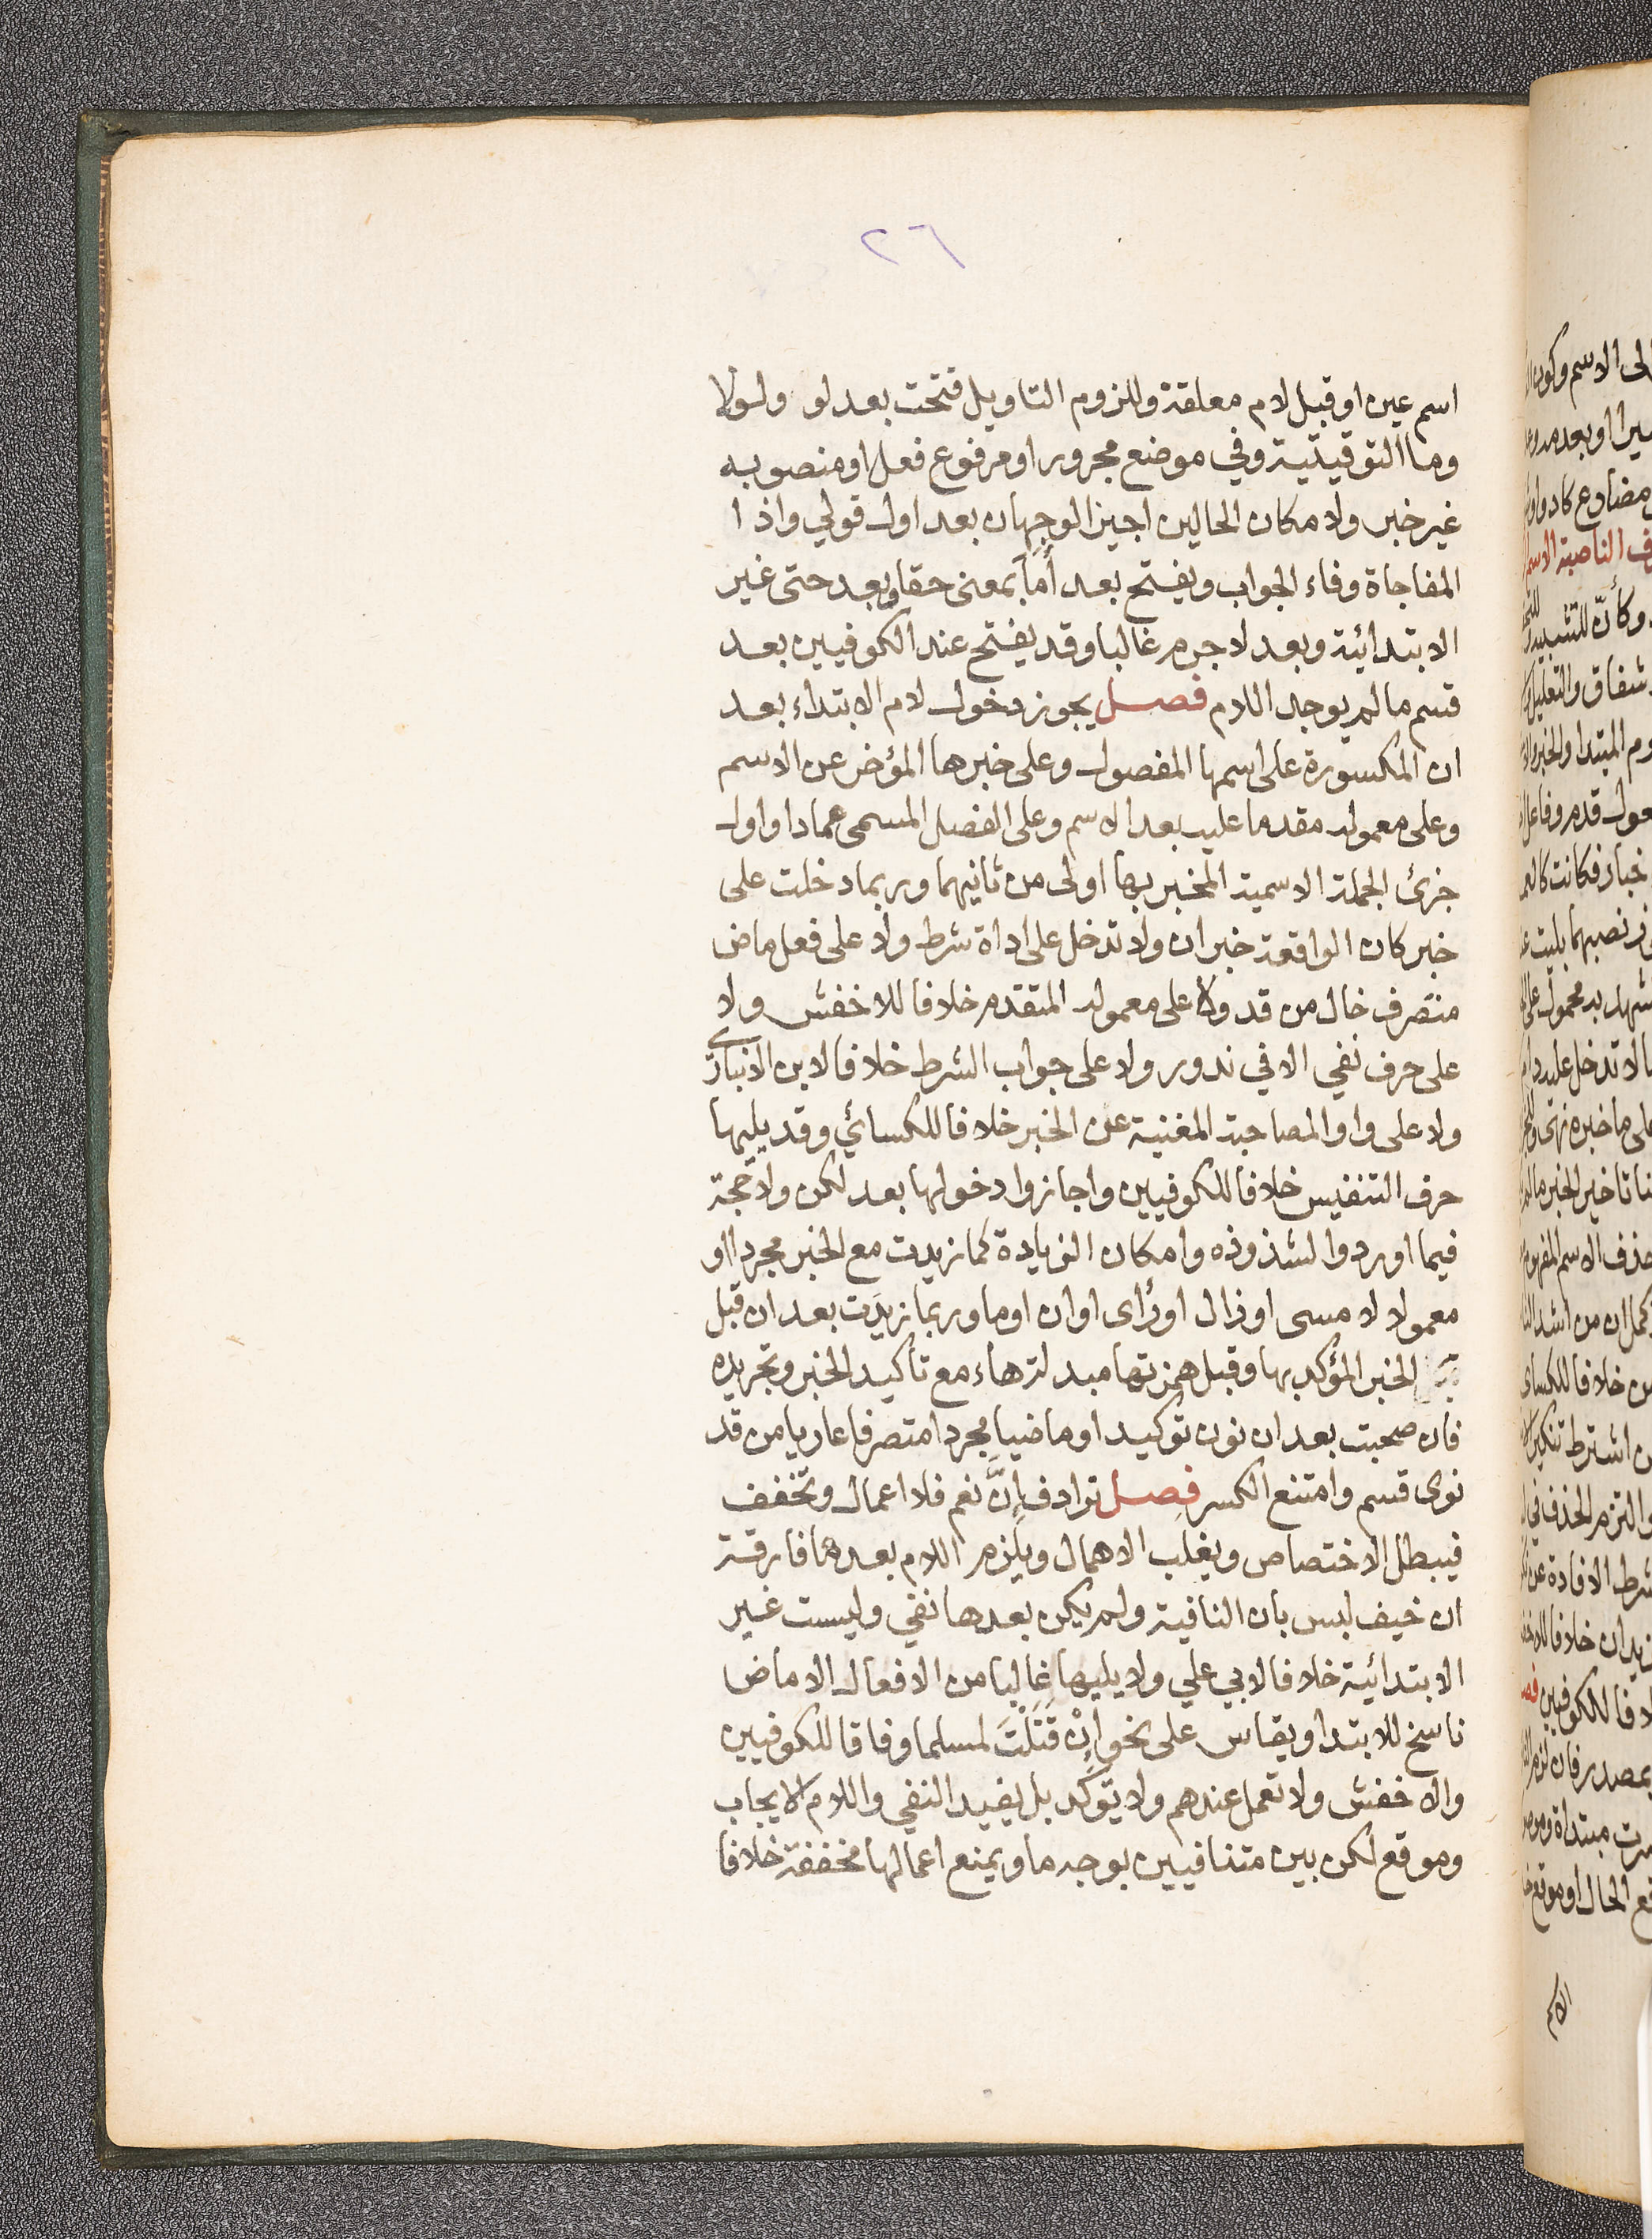 ٢٦
اسم عين او قبل لام معلقة وللزوم التاويل فتحت بعد لو ولولا
وما التوقيتية وفي موضع مجرور او مرفوع فعل او منصوبه
غير خبر ولا مكان الحالين اجيز الوجهان بعد اول قولي واذا
المفاجاة وفاء الجواب ويفتح بعد أَمَا بمعنى حقا وبعد حتى غير
الابتدائية وبعد لا جرم غالبا وقد يفتح عند الكوفيين بعد
قسم مالم يوجد اللام فصل يجوز دخول لام الابتداء بعد
ان المكسورة على اسمها المفصول وعلى خبرها المؤخر عن الاسم
وعلى معموله مقدما عليه بعد الاسم وعلى الفصل المسمى عمادا واول
جزئ الجملة الاسمية المخبر بها اولى من ثانيهما وربما دخلت على
خبر كان الواقعة خبر ان ولا تدخل على اداة شرط ولا على فعل ماض
متصرف خال من قد ولا على معموله المتقدم خلافا للاخفش ولا
على حرف نفي الا في ندور ولا على جواب الشرط خلافا لابن الانباري
ولا على واو المصاحبة المغنية عن الخبر خلافا للكسائي وقد يليها
حرف التنفيس خلافا للكوفيين واجازوا دخولها بعد لكن ولا حجة
فيما اوردوا لشذوذه وامكان الزيادة كما زيدت مع الخبر مجردا او
معمولا لامسى او زال او رأى او ان او ما وربما زيدَت بعد ان قبل
الخبر المؤكد بها وقبل همزتها مبدلة هاء مع تأكيد الخبر وتجريده
فان صحبت بعد ان نون توكيد او ماضيا مجردا متصرفا عاريا من قد
نوى قسم وامتنع الكسر فصل ترادف إِنَّ نعم فلا اعمال وتخفف
فيبطل الاختصاص ويغلب الاهمال ويلزم اللام بعدها فارقة
ان خيف لبس بان النافية ولم يكن بعدها نفي وليست غير
الابتدائية خلافا لابي علي ولا يليها غالبا من الافعال الا ماض
ناسخ للابتدا ويقاس على نحو إِنْ قَتَلْتَ لمسلما وفاقا للكوفيين
والاخفش ولا تعمل عندهم ولا يَوَكّد بل يفيد النفي واللام الايجاب
وموقع لكن بين متنافيين بوجه ما ويمنع اعمالها مخففة خلافا